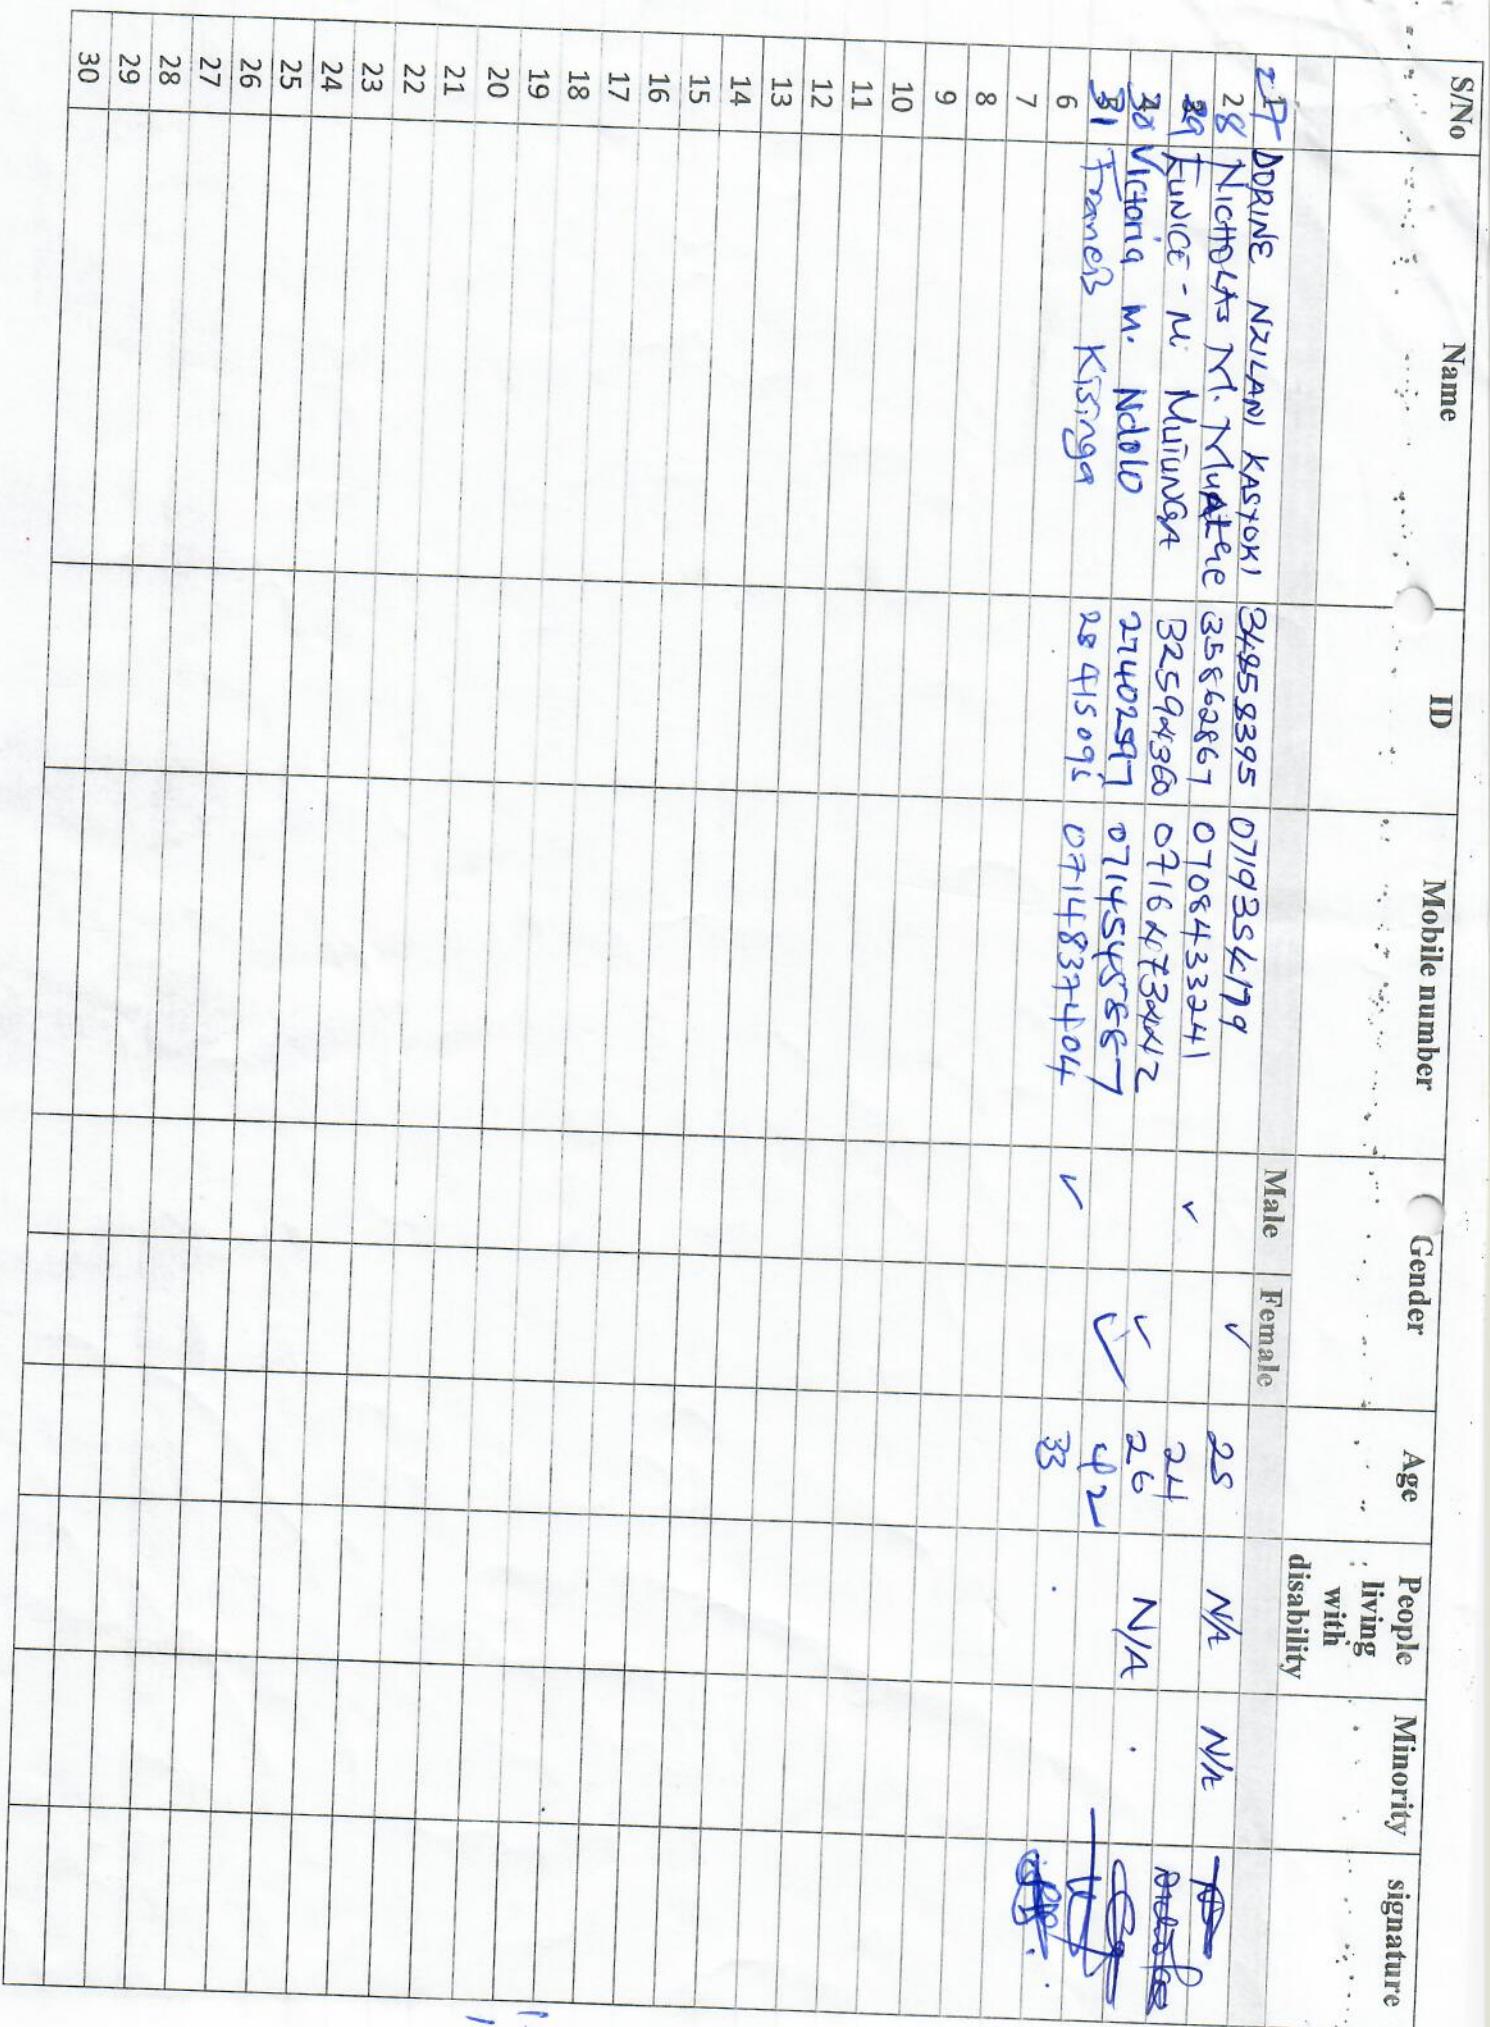 S/No Name ID Mobile number Gender Age People living with disability Minority signature
Male Female
27 DORINE NZILANI KASYOKI 34858395 0719354179 ✓ 25 N/A N/A
28 NICHOLAS M. 35862867 0708433241 ✓ 24
29 EUNICE - M. MUTUNGA 32594360 0716473442 ✓ 26 N/A
30 Victoria M. Ndolo 27402597 ✓ 42
31 Francis Kisinga 28415095 0714837404 ✓ 33
6
7
8
9
10
11
12
13
14
15
16
17
18
19
20
21
22
23
24
25
26
27
28
29
30